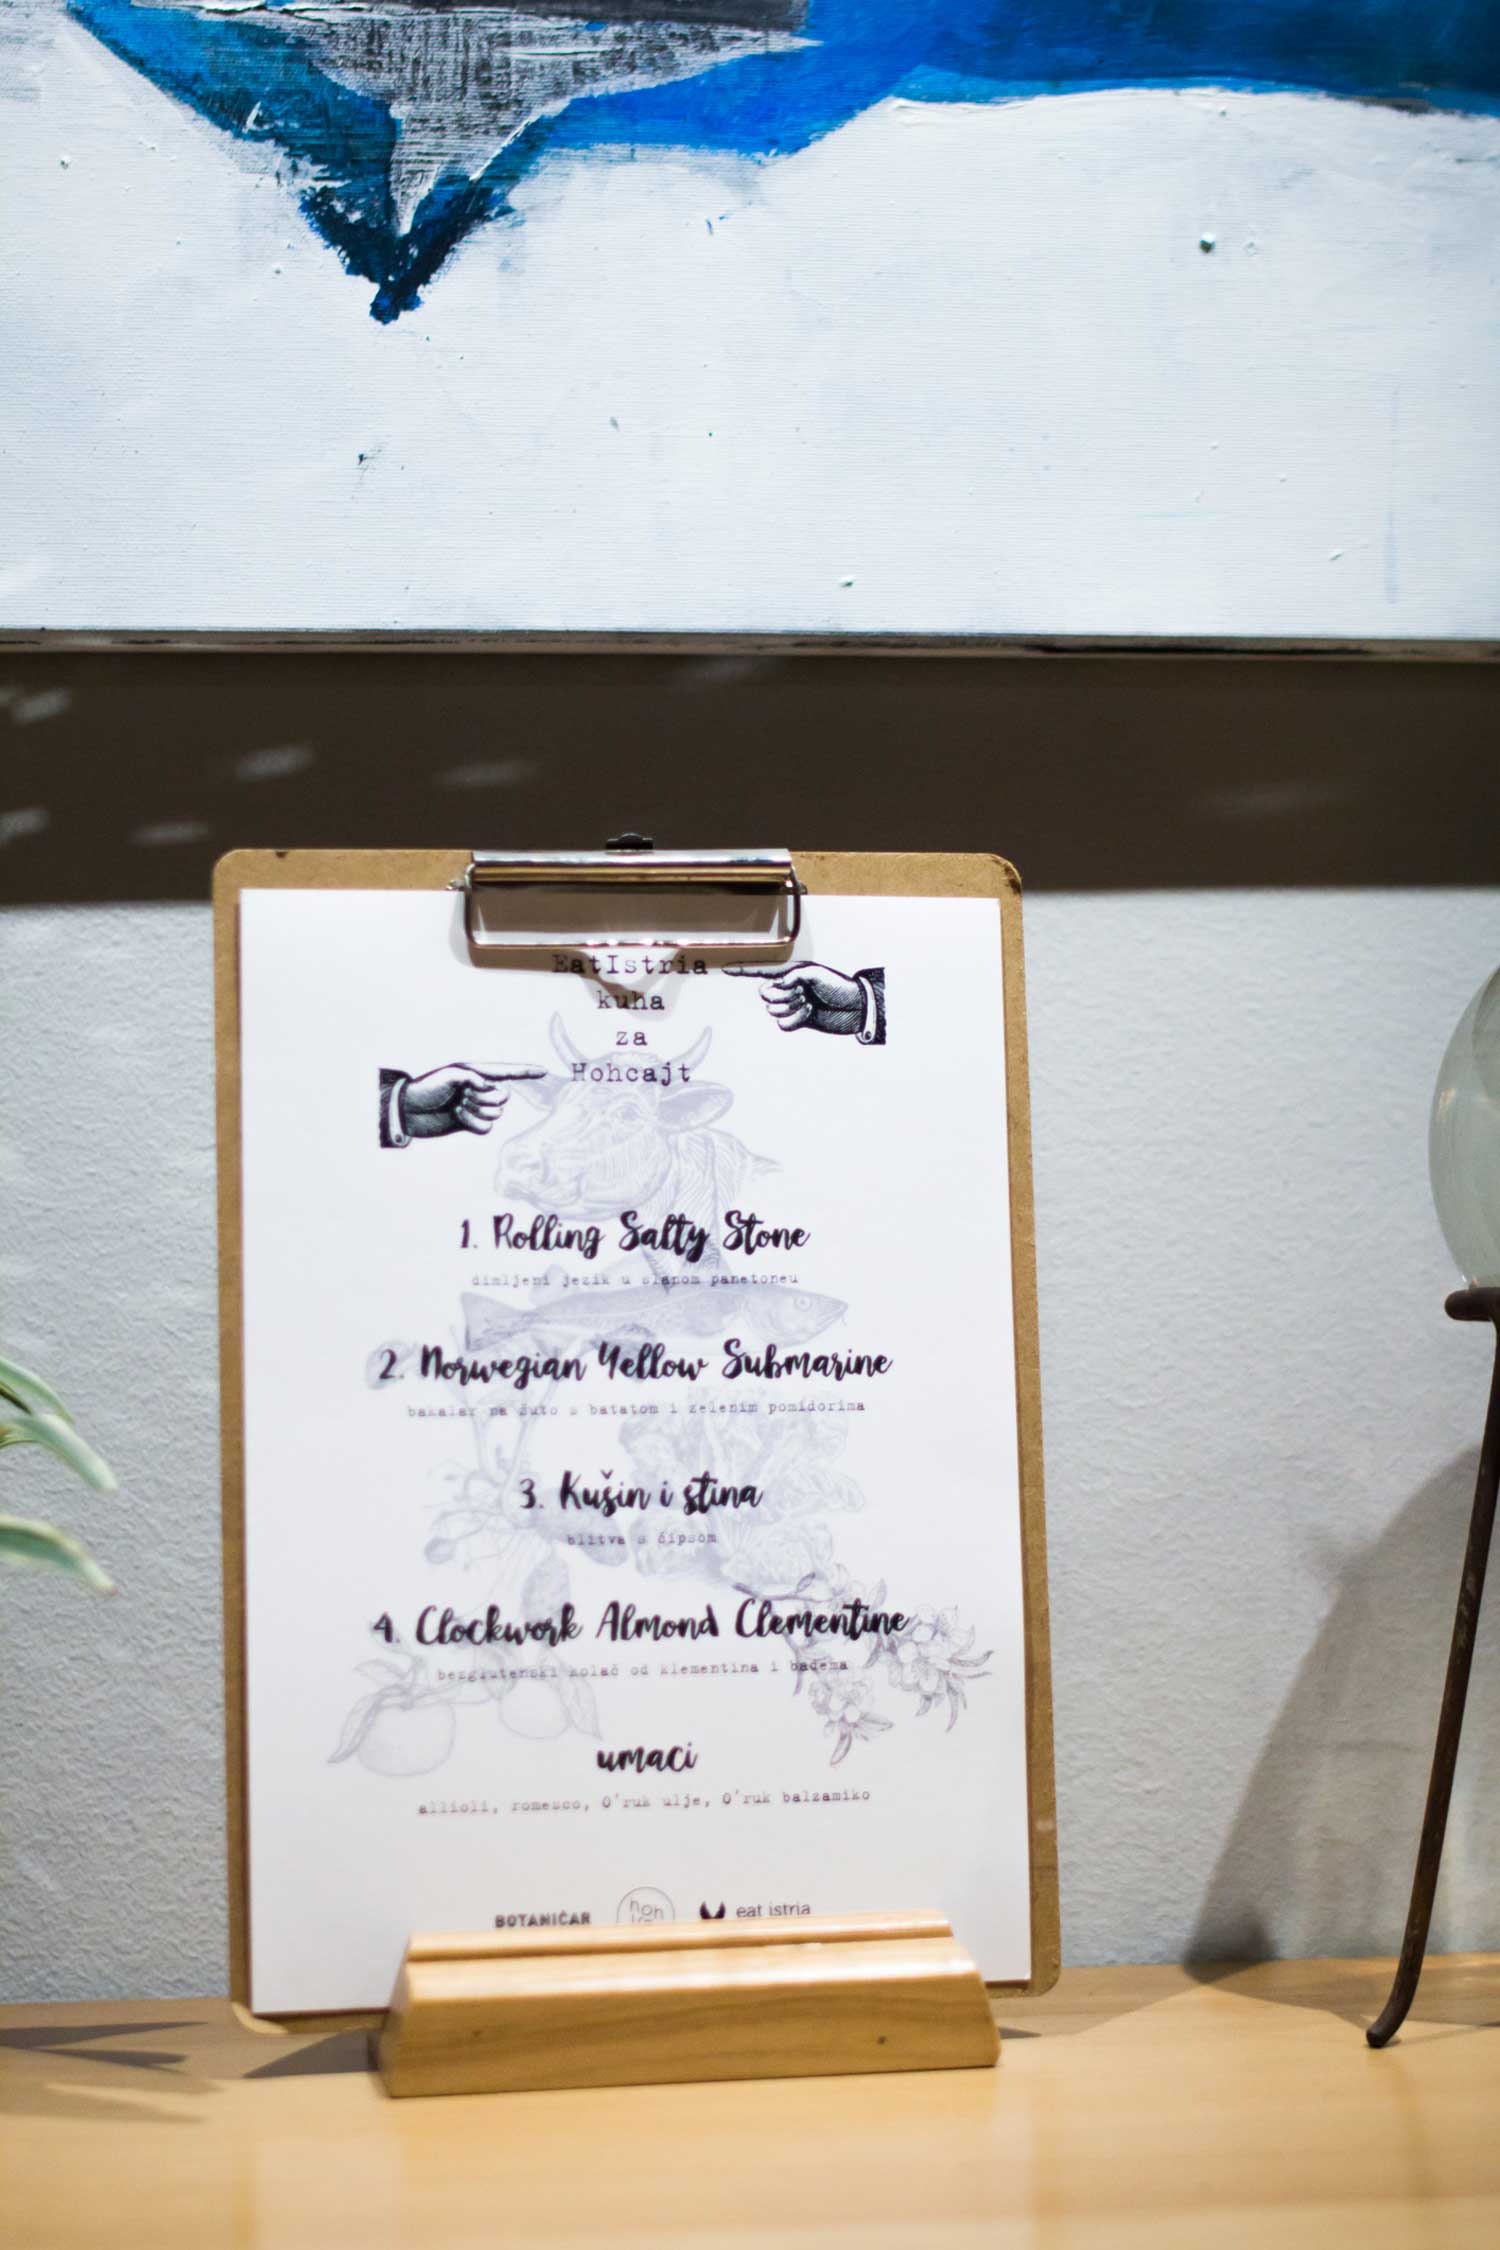 EatIstria
kuha
za
Hohcajt
1. Rolling Salty Stone
dimljeni jezik u slanom panetoneu
2. Norwegian Yellow Submarine
bakalar na žuto s batatom i zelenim pomidorima
3. Kušin i stina
blitva s čipsom
4. Clockwork Almond Clementine
bezglutenski kolač od klementina i badema
umaci
allioli, romesco, O'ruk ulje, O'ruk balzamiko
BOTANIČAR
hoh
eat istria